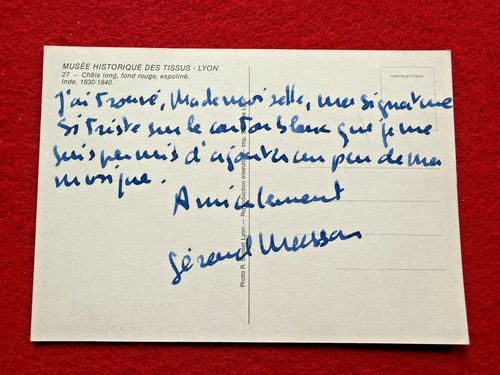 MUSÉE HISTORIQUE DES TISSUS - LYON
27 – Châle long, fond rouge, espoliné.
Inde, 1830-1840.
Imprimé en France
J'ai trouvé, Mademoiselle, ma signature
si triste sur le carton blanc que je me
suis permis d'ajouter un peu de ma
musique.
Amicalement
Gérard Masson
Photo R. Lyon — Reproduction interdite - Imp.